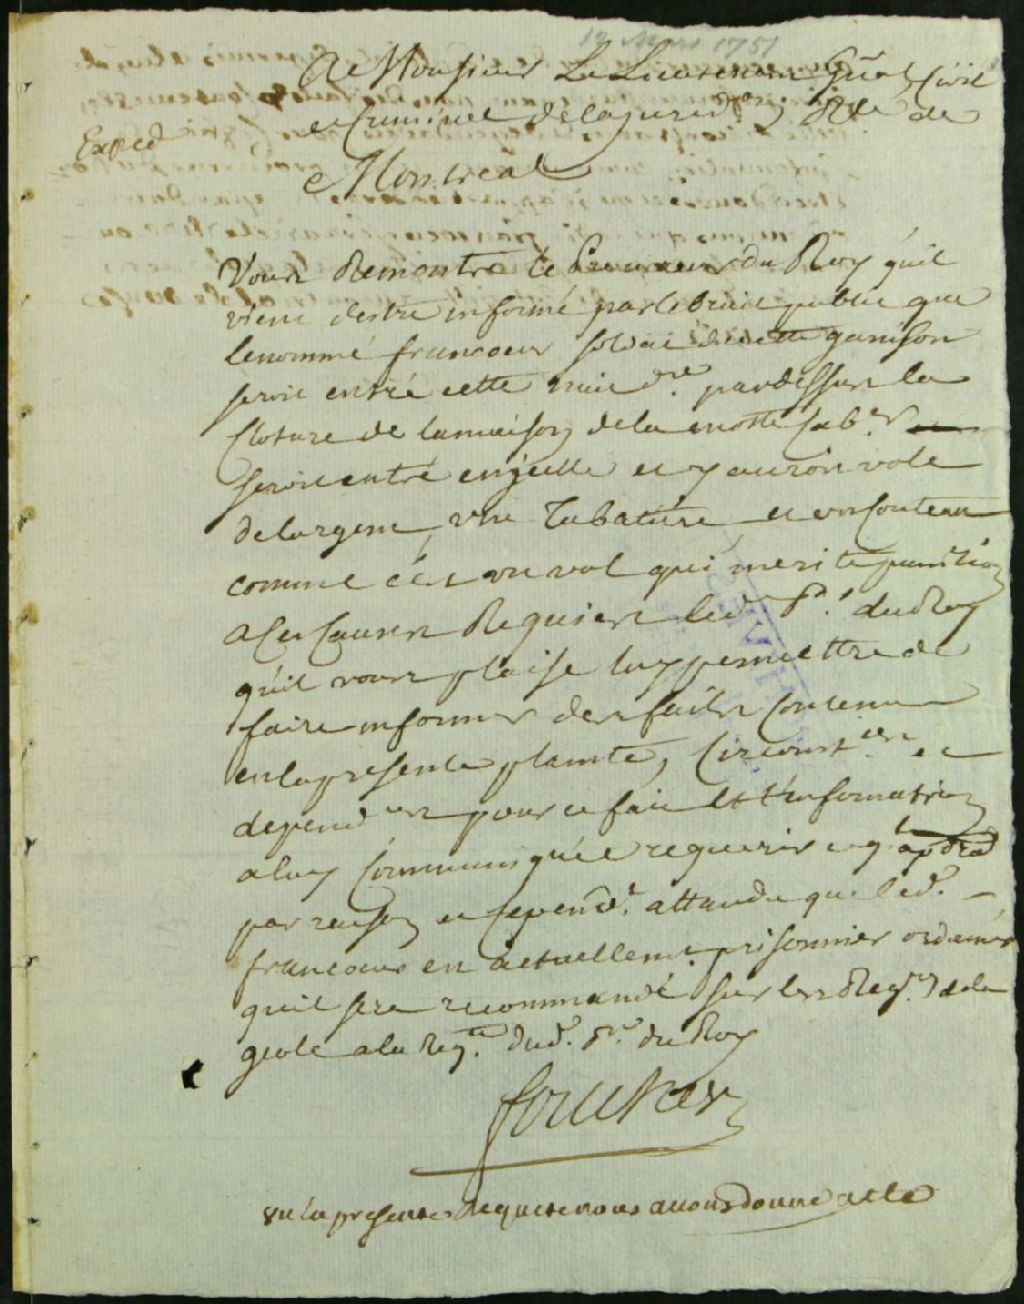 12 Mars 1751
A Monsieur Le Lieutenant Gñal Civil
et Criminel de la jurid.on R.le de
Montreal
Exped
Vous Remontre le Procureur du Roy qu'il
vient destre informé par le bruit public que
le nommé francoeur soldat de cette garnison
seroit entré cette nuit d.re par dessus la
Closture de la maison de la motte Cab.er
seroit entré en jcelle et y auroit volé
de largent, une Tabatiere et un Couteau
comme c'est un vol qui merite punition
A Ces Causes Requiert led. P.r du Roy
qu'il vous plaise luy permettre de
faire informer des faits Contenus
en la presente plainte, Circonst.ces et
depend.ces pour ce fait et l'information
a luy Communiquée requerir ce q'l apdra
par raison et Cepend.t attandu que led.
francoeur est actuellem.t prisonnier ordonner
quil sera recommandé sur les Reg.res de la
geole a la Req.te dud. P.r du Roy
foucher
vu la presente Requete nous avons donné acte